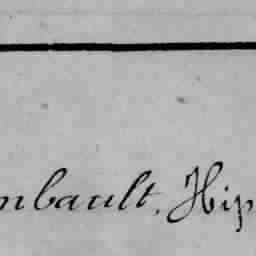 mbault, Hip